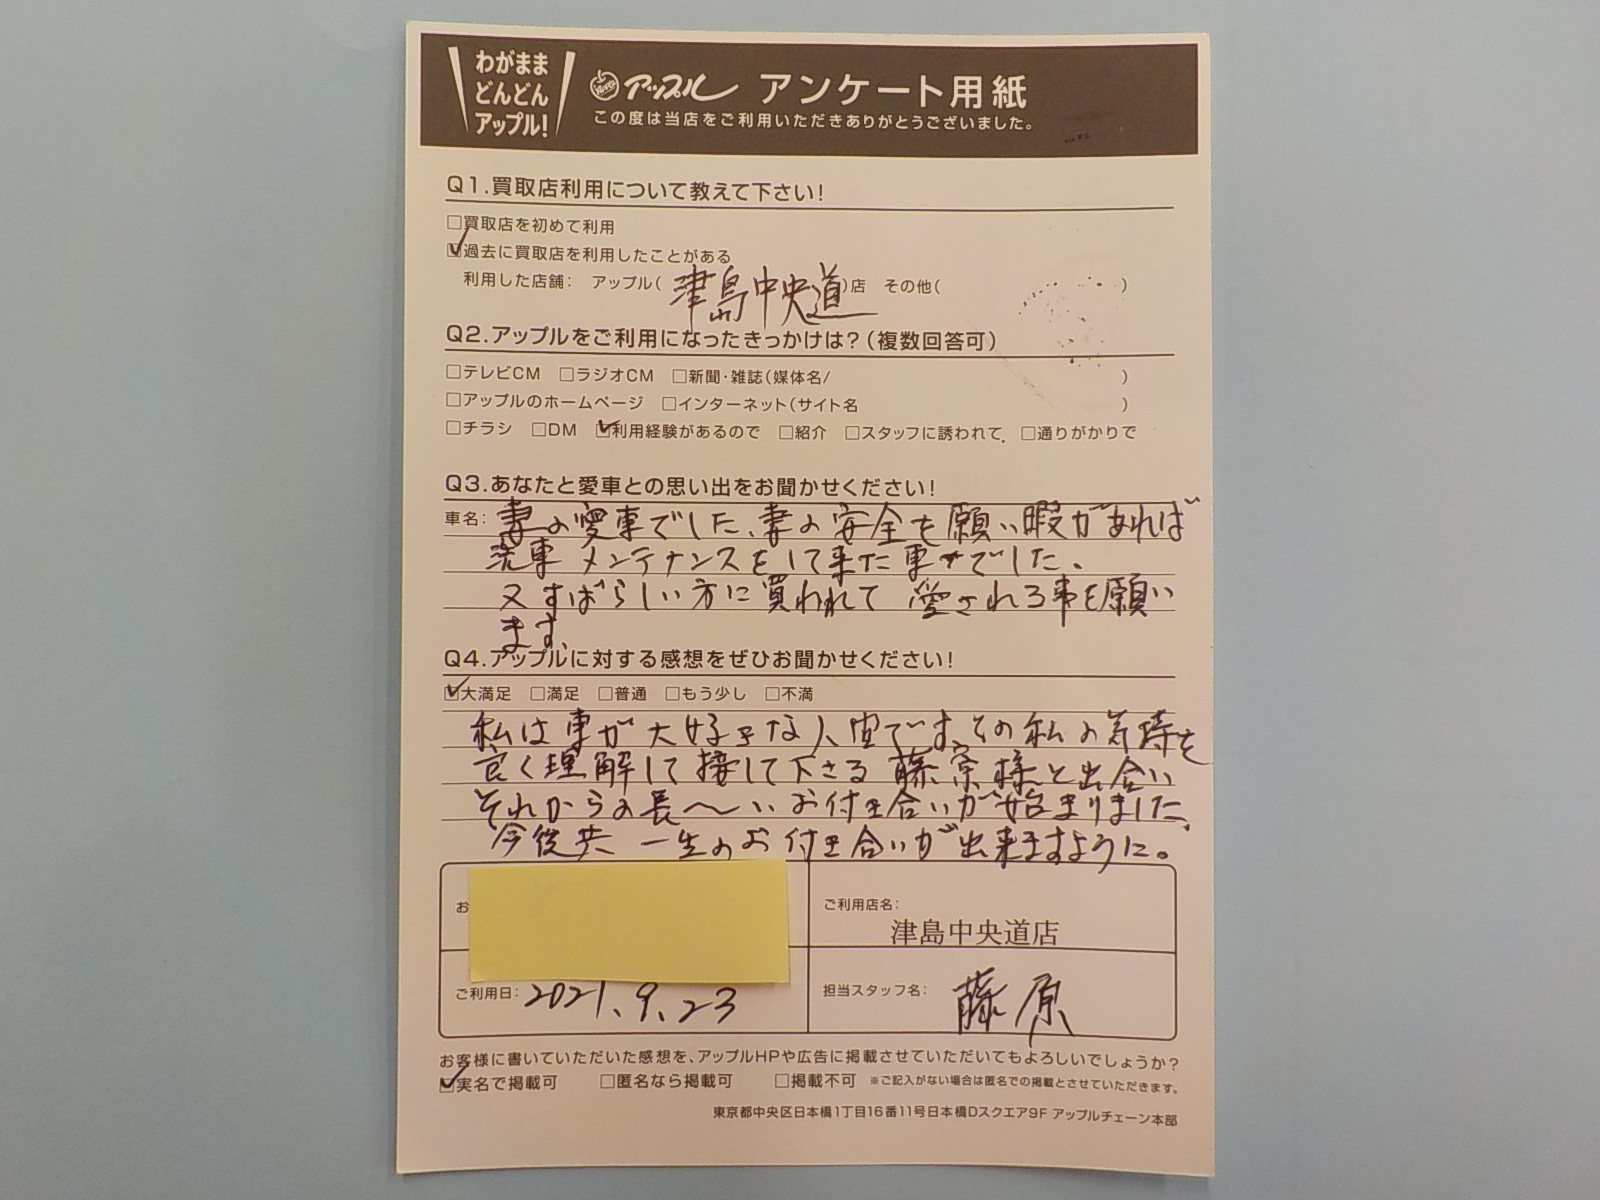 わがまま
どんどん
アップル!
アップル アンケート用紙
この度は当店をご利用いただきありがとうございました。
Q1.買取店利用について教えて下さい!
□買取店を初めて利用
☑過去に買取店を利用したことがある
利用した店舗: アップル(津島中央道)店 その他( )
Q2.アップルをご利用になったきっかけは?(複数回答可)
□テレビCM □ラジオCM □新聞・雑誌(媒体名/ )
□アップルのホームページ □インターネット(サイト名 )
□チラシ □DM ☑利用経験があるので □紹介 □スタッフに誘われて □通りがかりで
Q3.あなたと愛車との思い出をお聞かせください!
車名: 妻の愛車でした、妻の安全を願い暇があれば
洗車 メンテナンスをして来た車でした。
又すばらしい方に買われて 愛される事を願い
ます。
Q4.アップルに対する感想をぜひお聞かせください!
☑大満足 □満足 □普通 □もう少し □不満
私は車が大好きな人間です、その私の気持を
良く理解して接して下さる 藤原様と出合い
それからの長〜いお付き合いが始まりました、
今後共 一生のお付き合いが出来ますように。
お
ご利用店名:
津島中央道店
ご利用日: 2021.9.23
担当スタッフ名: 藤原
お客様に書いていただいた感想を、アップルHPや広告に掲載させていただいてもよろしいでしょうか?
☑実名で掲載可 □匿名なら掲載可 □掲載不可 ※ご記入がない場合は匿名での掲載とさせていただきます。
東京都中央区日本橋1丁目16番11号日本橋Dスクエア9F アップルチェーン本部